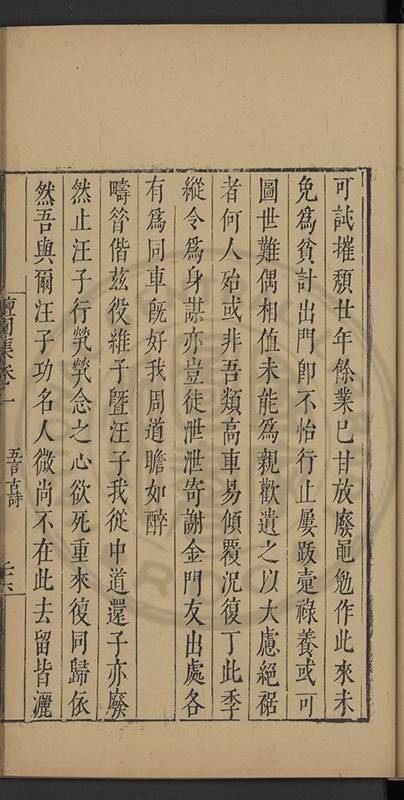 可試摧頹廿年餘業已甘放廢黽勉作此來未
免為貧計出門卽不怡行止屢跋疐祿養或可
圖世難偶相值未能為親歡遺之以大慮絕裾
者何人殆或非吾類高車易傾覆況復丁此季
縱令為身謀亦豈徒泄泄寄謝金門友出處各
有為同車旣好我周道瞻如醉
疇昝偕茲役維子曁汪子我從中道還子亦廢
然止汪子行煢煢念之心欲死重來復同歸依
然吾與爾汪子功名人微尚不在此去留皆灑
集卷一
五言古詩